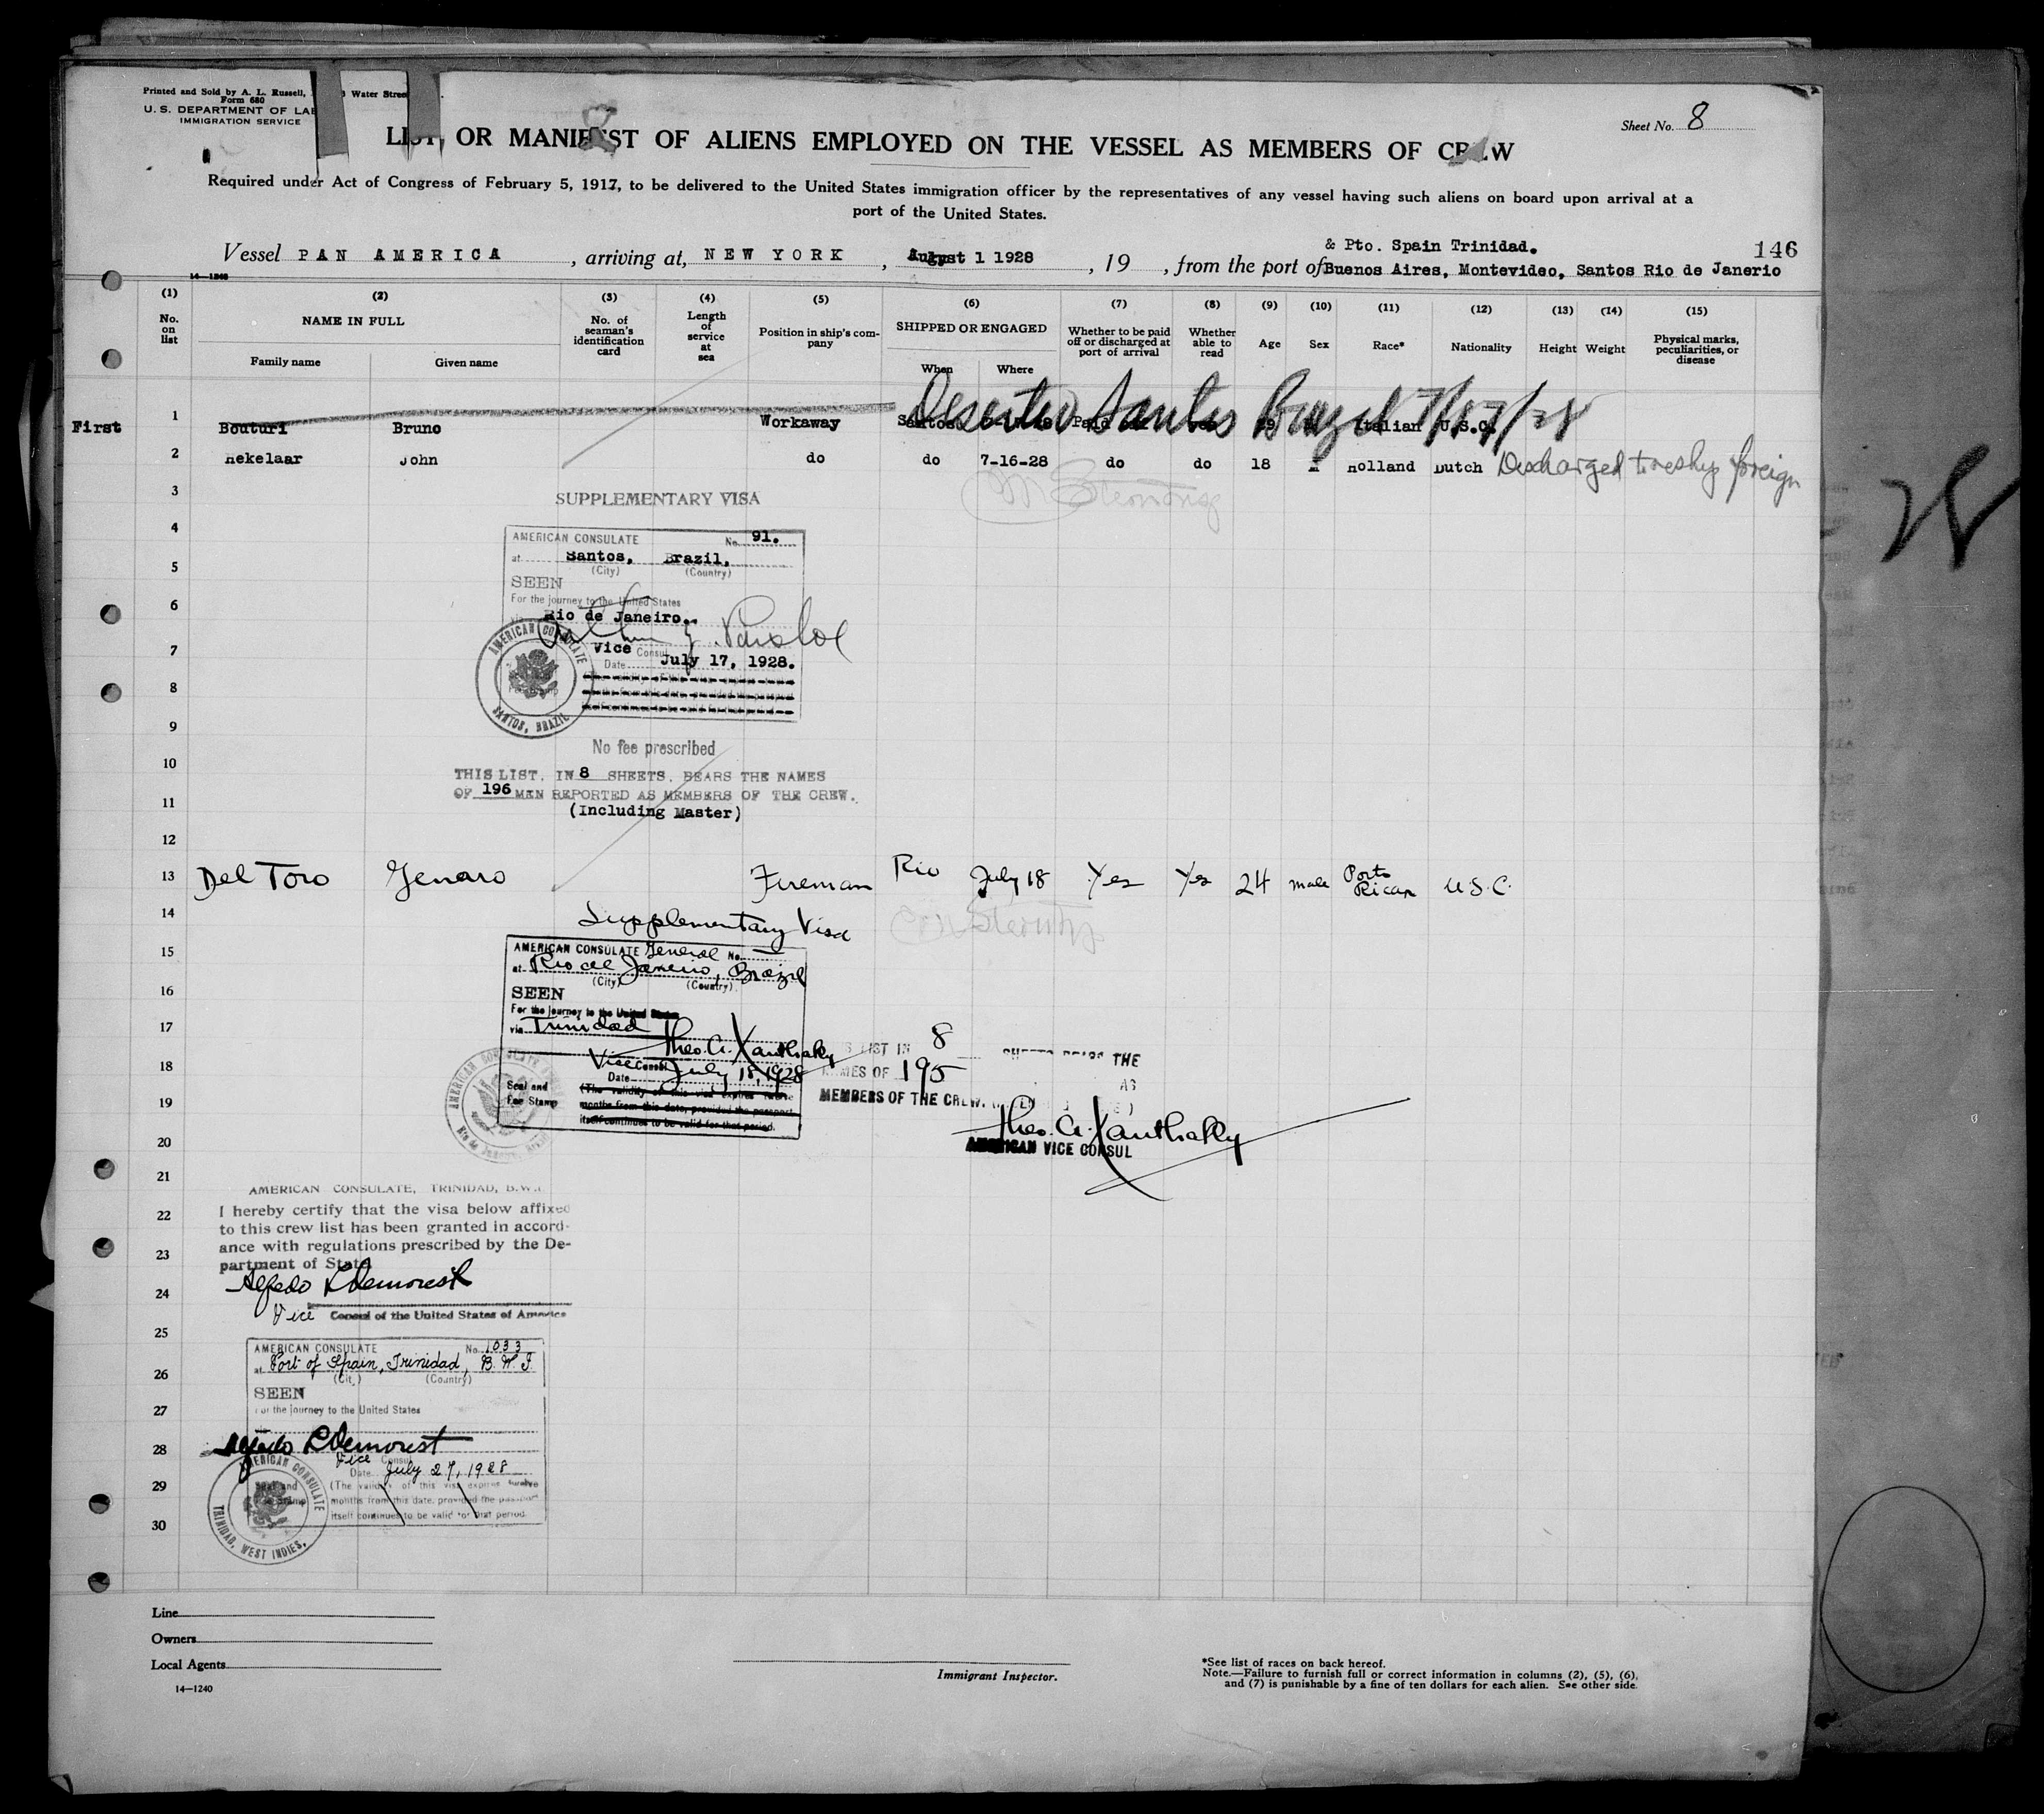 Printed and Sold by A. L. Russell, Water Street
Form 680
U. S. DEPARTMENT OF LAB
IMMIGRATION SERVICE
Sheet No. 8
LIST OR MANIFEST OF ALIENS EMPLOYED ON THE VESSEL AS MEMBERS OF CREW
Required under Act of Congress of February 5, 1917, to be delivered to the United States immigration officer by the representatives of any vessel having such aliens on board upon arrival at a
port of the United States.
& Pto. Spain Trinidad. 146
Vessel PAN AMERICA, arriving at, NEW YORK, August 1 1928, 19 , from the port of Buenos Aires, Montevideo, Santos Rio de Janerio
14—1240
(1) (2) (3) (4) (5) (6) (7) (8) (9) (10) (11) (12) (13) (14) (15)
No. on list
NAME IN FULL
Family name Given name
No. of seaman's identification card
Length of service at sea
Position in ship's company
SHIPPED OR ENGAGED
When Where
Whether to be paid off or discharged at port of arrival
Whether able to read
Age Sex Race* Nationality Height Weight
Physical marks, peculiarities, or disease
Deserted Santos Brazil 7/17/28
First 1 Bouturi Bruno Workaway Santos Italian U.S.C.
2 Hekelaar John do do 7-16-28 do do 18 M Holland Dutch Discharged to reship foreign
3
SUPPLEMENTARY VISA
4
AMERICAN CONSULATE No. 91.
at Santos, Brazil,
5
(City) (Country)
SEEN
For the journey to the United States
6
via Rio de Janeiro.
7
Vice Consul
Date July 17, 1928.
8
AMERICAN CONSULATE
SANTOS, BRAZIL
9
No fee prescribed
10
THIS LIST, IN 8 SHEETS, BEARS THE NAMES
OF 196 MEN REPORTED AS MEMBERS OF THE CREW.
11
(Including Master)
12
13 Del Toro Genaro Fireman Rio July 18 Yes Yes 24 male Porto Rican U.S.C.
14
Supplementary Visa
15
AMERICAN CONSULATE General No.
at Rio de Janeiro, Brazil
(City) (Country)
16
SEEN
For the journey to the United States
17
via Trinidad
Theo. A. Xanthaky
Vice Consul
18
Date July 18, 1928
Seal and
Fee Stamp
(The validity of this visa expires twelve
months from this date, provided the passport
itself continues to be valid for that period.
LIST IN 8 SHEETS BEARS THE
NAMES OF 195 AS
19
MEMBERS OF THE CREW.
Theo. A. Xanthaky
20
AMERICAN VICE CONSUL
21
AMERICAN CONSULATE, TRINIDAD, B.W.I.
22
I hereby certify that the visa below affixed
to this crew list has been granted in accord-
23
ance with regulations prescribed by the De-
partment of State
24
Alfredo L Demorest
Vice Consul of the United States of America
25
AMERICAN CONSULATE No. 1033
26
at Port of Spain, Trinidad, B.W.I.
(City) (Country)
SEEN
27
For the journey to the United States
28
Alfredo L Demorest
Vice Consul
Date July 27, 1928
29
(The validity of this visa expires twelve
months from this date, provided the passport
itself continues to be valid for that period.
AMERICAN CONSULATE
TRINIDAD, WEST INDIES.
30
Line
Owners
Local Agents
14—1240
Immigrant Inspector.
*See list of races on back hereof.
Note.—Failure to furnish full or correct information in columns (2), (5), (6),
and (7) is punishable by a fine of ten dollars for each alien. See other side.